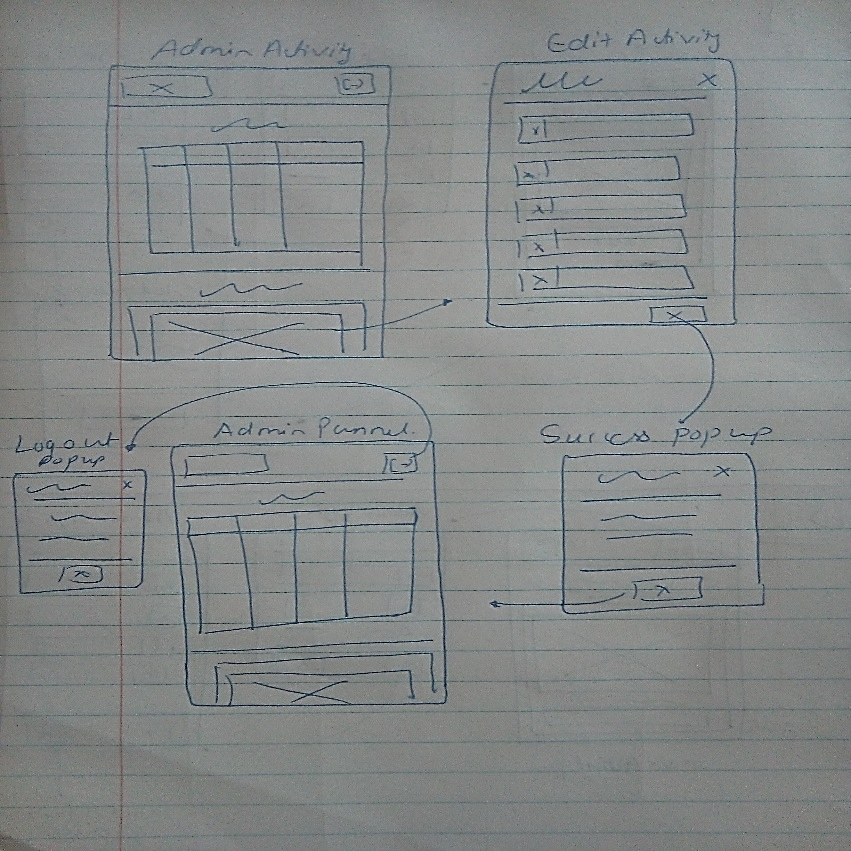 Admin Activity
Edit Activity
Logout
popup
Admin Pannel
Success popup